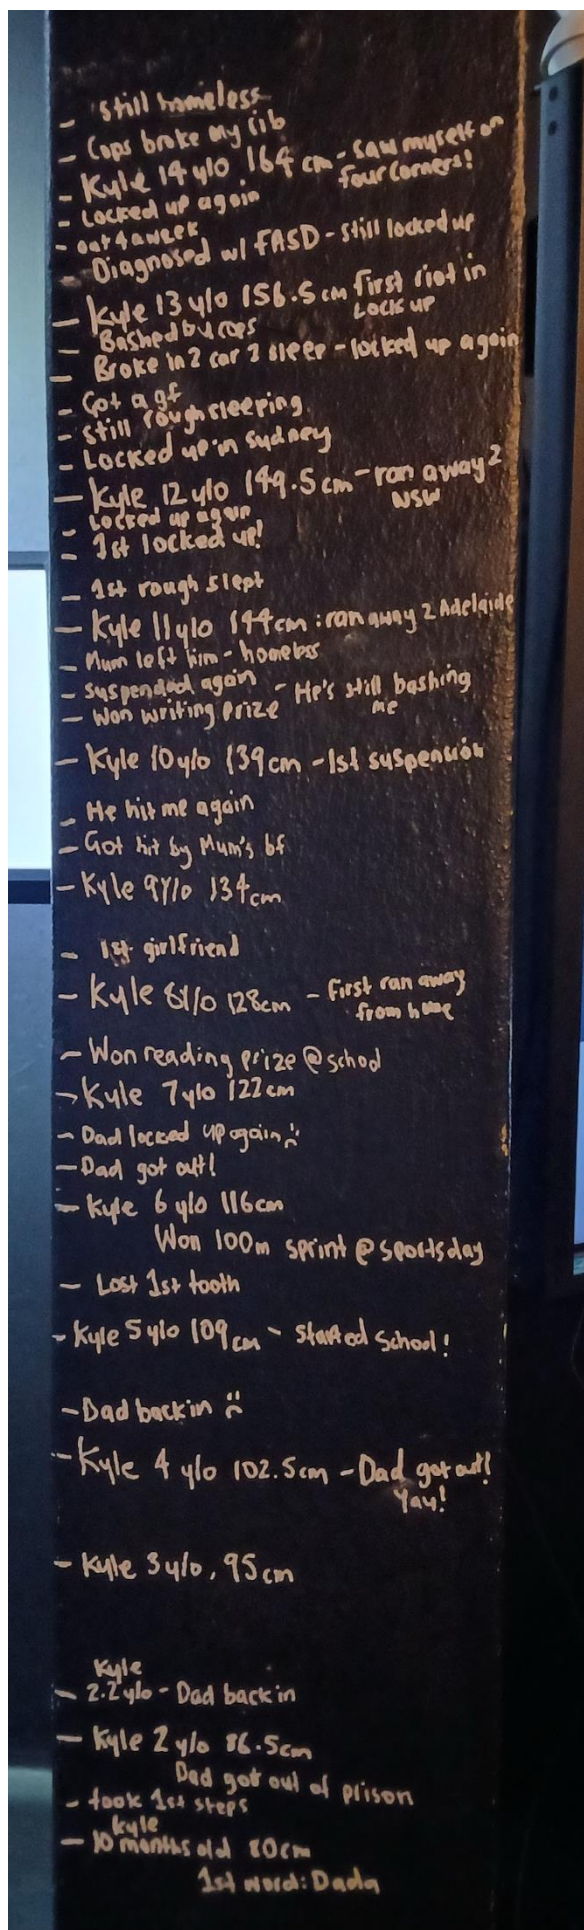 - Still homeless
- Cops broke my rib
- Kyle 14 ylo 164 cm - saw myself on
four corners!
- Locked up again
- out 4 a week
- Diagnosed w/ FASD - still locked up
- Kyle 13 ylo 156.5 cm first riot in
Lock up
- Bashed by cops
- Broke in 2 car 2 sleep - locked up again
- Got a gf
- still rough sleeping
- Locked up in Sydney
- Kyle 12 ylo 149.5cm - ran away 2
NSW
- Locked up again
- 1st locked up!
- 1st rough slept
- Kyle 11 ylo 144cm: ran away 2 Adelaide
- Mum left him - homeless
- Suspended again - He's still bashing
me
- Won writing prize
- Kyle 10 ylo 139cm - 1st suspension
- He hit me again
- Got hit by Mum's bf
- Kyle 9 ylo 134cm
- 1st girlfriend
- Kyle 8 ylo 128cm - First ran away
from home
- Won reading prize @ school
- Kyle 7 ylo 122 cm
- Dad locked up again :(
- Dad got out!
- Kyle 6 ylo 116cm
Won 100m sprint @ sportsday
- Lost 1st tooth
- Kyle 5 ylo 109cm - started School!
- Dad back in :(
- Kyle 4 ylo 102.5cm - Dad got out!
Yay!
- Kyle 3 ylo, 95cm
Kyle
- 2.2 ylo - Dad back in
- Kyle 2 ylo 86.5cm
Dad got out of prison
- took 1st steps
Kyle
- 10 months old 80cm
1st word: Dada